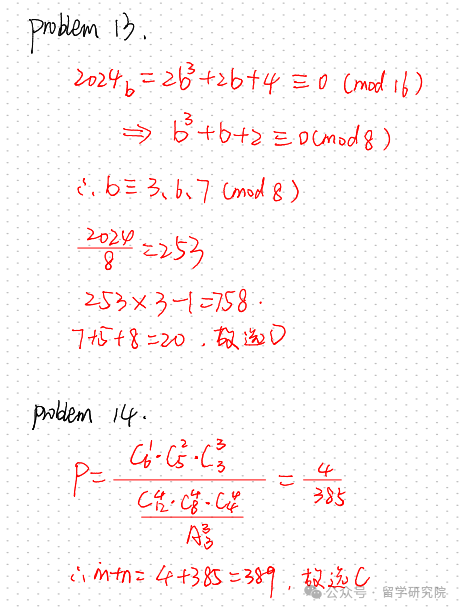 problem 13.
2024_b = 2b³+2b+4 ≡ 0 (mod 16)
⇒ b³+b+2 ≡ 0 (mod 8)
∴ b ≡ 3、6、7 (mod 8)
2024/8 = 253
253×3-1=758.
7+5+8=20 , 故选D
problem 14.
P = (C₆¹·C₅²·C₃³)/((C₁₂⁴·C₈⁴·C₄⁴)/A₃³) = 4/385
∴ m+n = 4+385=389 , 故选C
公众号 · 留学研究院